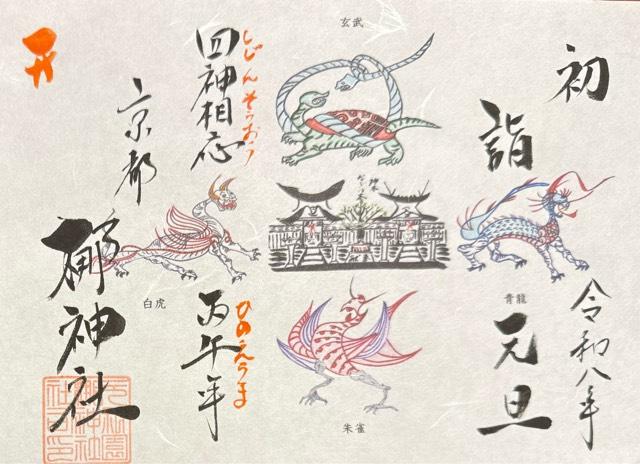 初詣
令和八年
元旦
玄武
青龍
朱雀
白虎
四神相応
しじんそうおう
丙午年
ひのえうま
京都
梛神社